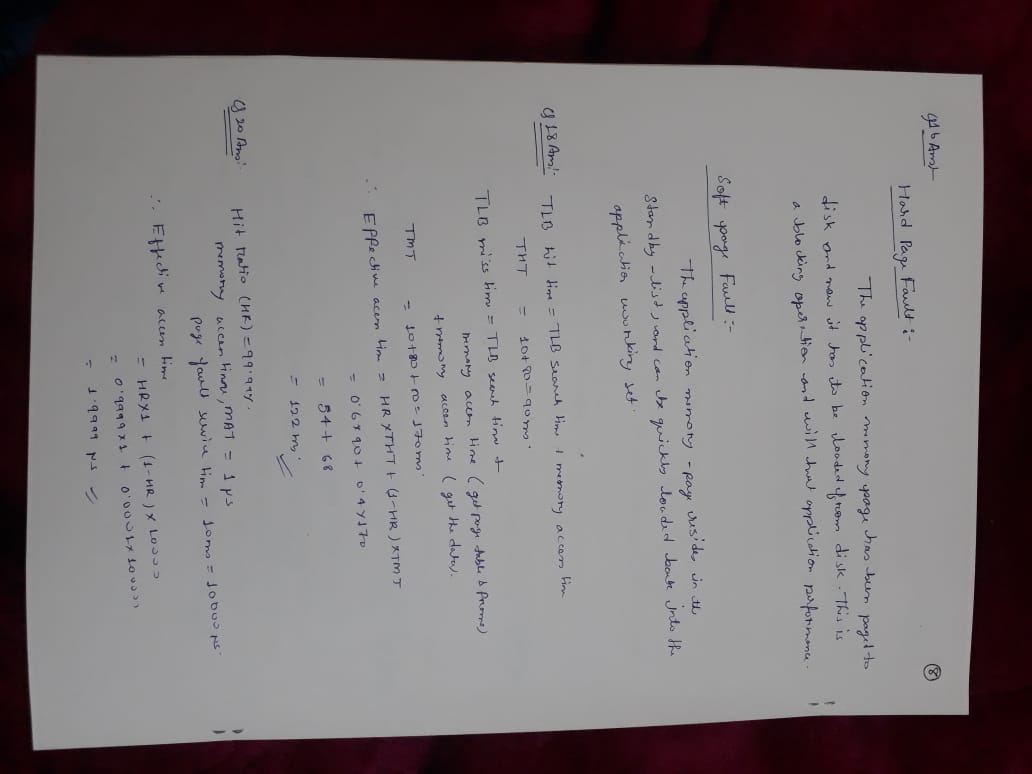 Q16 Ans:-
8
Hard Page Fault :-
The application memory page has been paged to
disk and now it has to be loaded from disk. This is
a blocking operation and will hurt application performance.
Soft page Fault :-
The application memory - page resides in the
Standby - list, and can be quickly loaded back into the
application working set.
Q 18 Ans:- TLB hit time = TLB search time + memory access time
THT = 10+80=90ms.
TLB miss time = TLB search time +
memory access time (get page table & frame)
+ memory access time (get the data).
TMT = 10+80+80=170ms.
∴ Effective access time = HR x THT + (1-HR) x TMT
= 0.6x90+ 0.4x170
= 54+ 68
= 122 ms.
Q 20 Ans:- Hit Ratio (HR) = 99.99%.
memory access time, MAT = 1 μs
page fault service time = 10ms = 10000 μs.
∴ Effective access time
= HRx1 + (1-HR) x 10000
= 0.9999x1 + 0.0001x
= 1.9999 μs